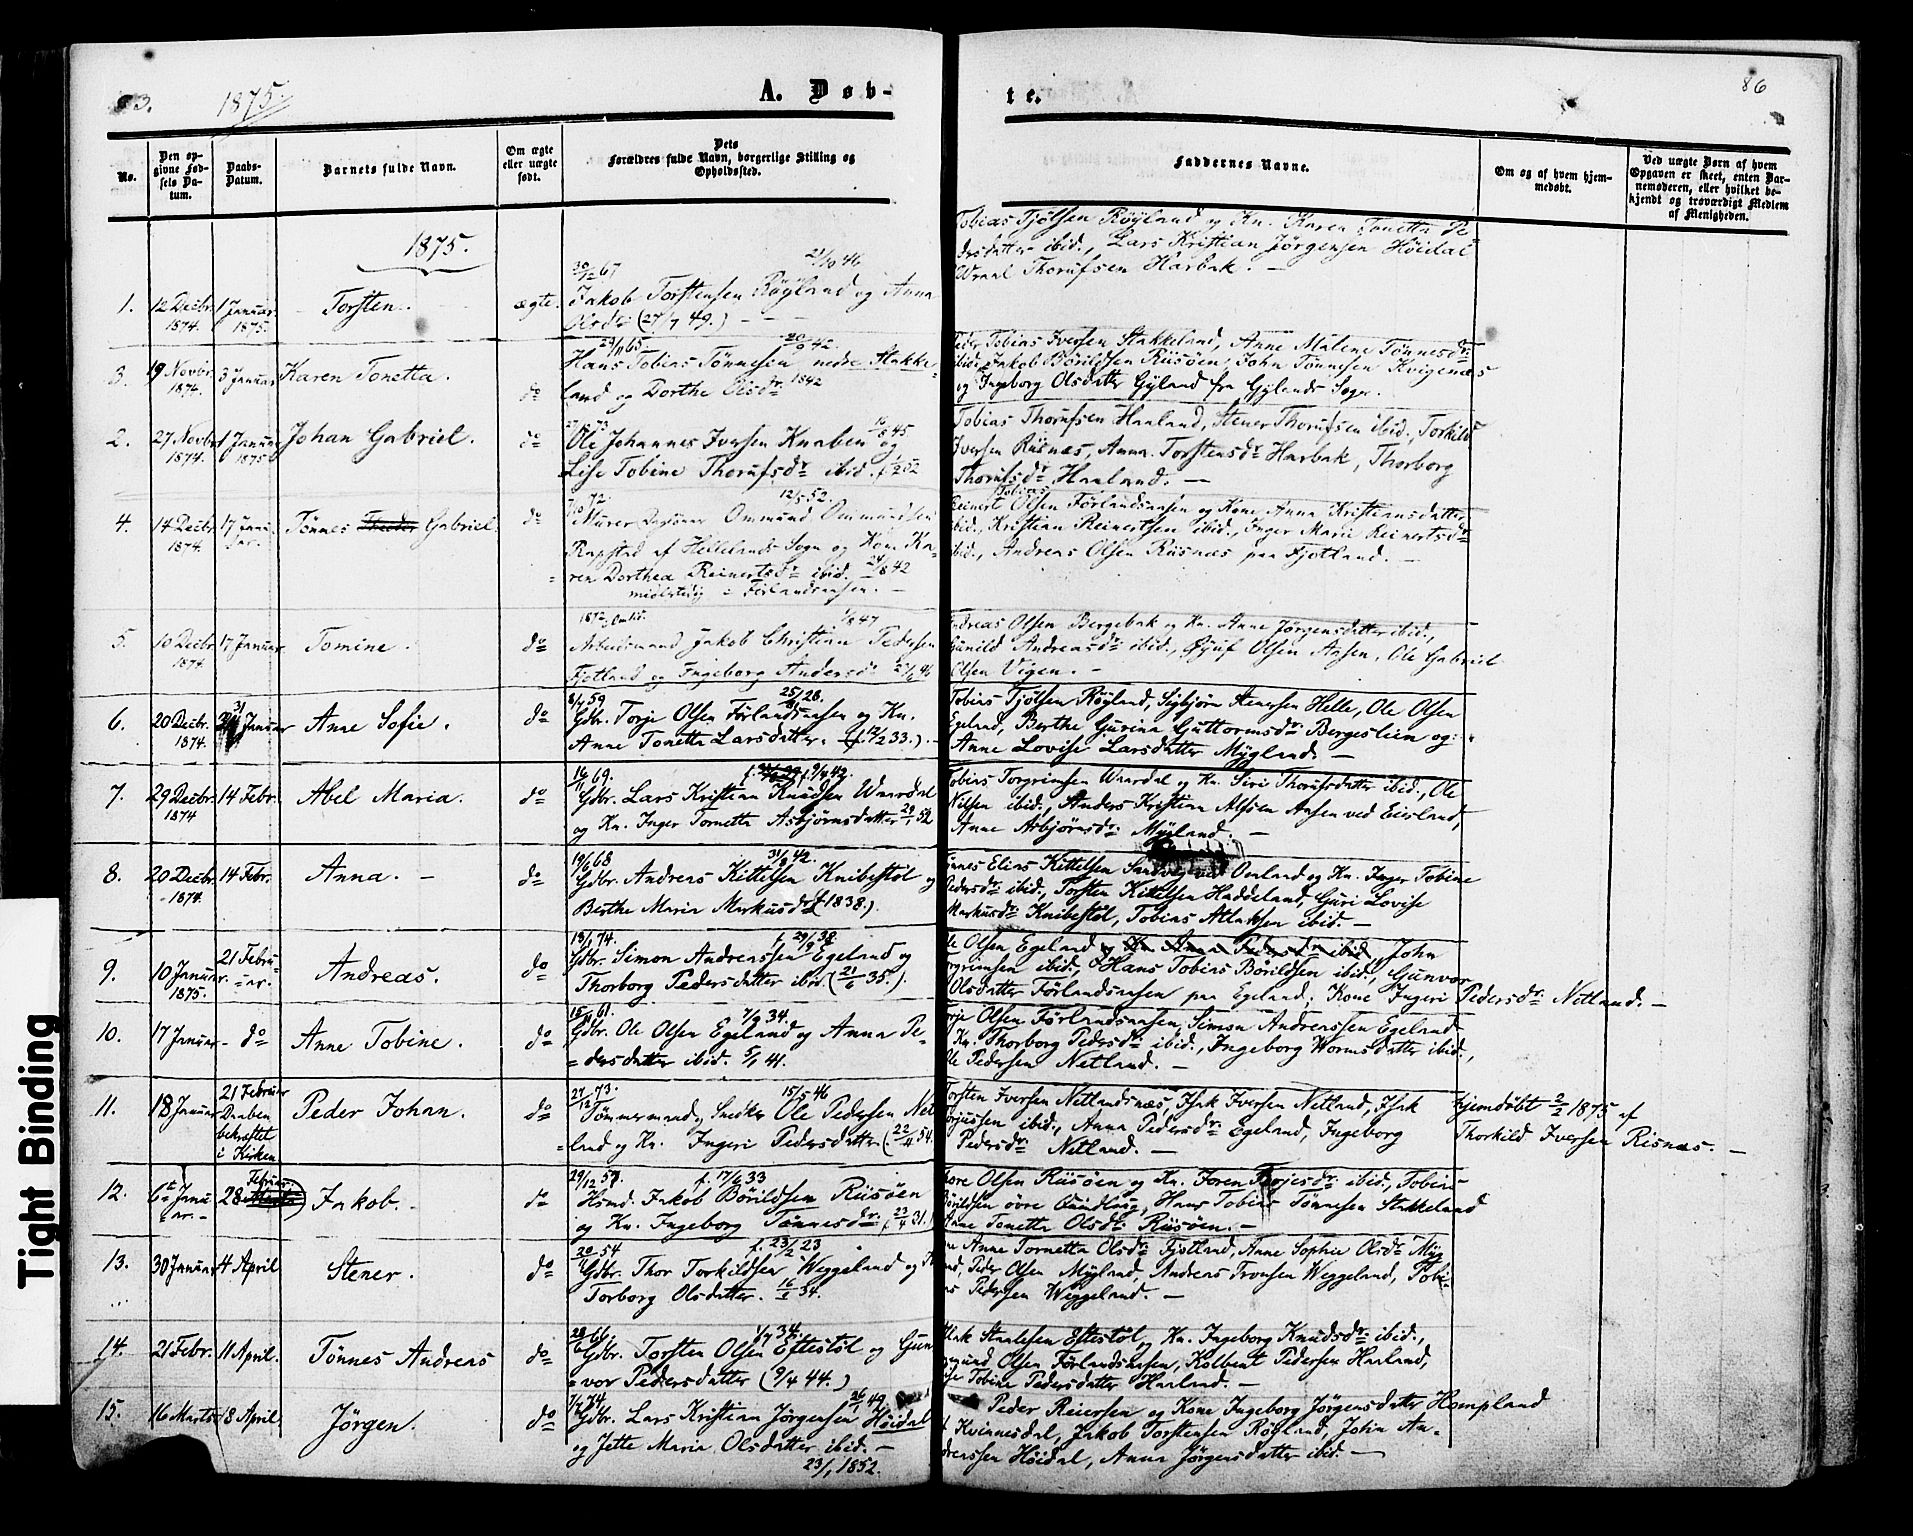 1875.
A. Døb-
te.
86
No.
Den op-
givne Fød-
sels Da-
tum.
Daabs-
Datum.
Barnets fulde Navn.
Om ægte
eller uægte
født.
Dets
Forældres fulde Navn, borgerlige Stilling og
Opholdssted.
Faddernes Navne.
Om og af hvem hjem-
medøbt.
Ved uægte Børn af hvem
Opgaven er skeet, enten Bar-
nemoderen, eller hvilket be-
kjendt og troværdigt Medlem
af Menigheden.
1875.
1. 12 Decbr. 1874. 1 Januar 1875. Torsten. ægte.
30/12 67 21/10 46
Jakob Torstensen Røyland og Anna
Olsdr (27/7 49.)
Tobias Tjølsen Røyland og Kn. Karen Tonetta Pe
dersdatter ibid., Lars Kristian Jørgensen Høidal
Wraal Thorufsen Harbak. —
3. 19 Novbr. 1874. 3 Januar Karen Tonetta. do
29/11 65. 20/9 42.
Hans Tobias Tønnesen nedre Stakke-
land og Dorthe Olsdr 1842
Peder Tobias Iversen Stakkeland, Anne Malene Tønnesdr
ibid., Jakob Børildsen Riisøen, John Tønnesen Kvigenæs
og Ingeborg Olsdatter Gyland fra Gylands Sogn.
2. 27 Novbr. 1874. 1 Januar 1875 Johan Gabriel. do
Ole Johannes Iversen Knaben og
Lise Tobine Thorufsdr ibid.
Tobias Thorufsen Haaland, Stener Thorufsen ibid., Torkild
Iversen Risnæs, Anna Torstensdr Harbak, Thorborg
Thorufsdr Haaland. —
4. 14 Decbr. 1874. 17 Janu- ar. Tønnes Gabriel. do
12/5 52.
Murer Ommund Ommundsen
Rapstad af Hellelands Sogn og Kone Ka-
ren Dorthea Reinertsdr ibid. 24/8 42
midlertidig i Førlandsaasen. —
Reinert Tobias Olsen Førlandsaasen og Kone Anna Kristiansdatter
ibid., Kristian Reinertsen ibid., Inger Marie Reinertsdr
ibid., Andreas Olsen Risnæs paa Fjotland. —
5. 10 Decbr. 1874. 17 Januar Tomine. do
Arbeidsmand Jakob Christian Pedersen
Fjotland og Ingeborg Andersdr
Andreas Olsen Bergebak og Kn. Anne Jørgensdatter ibid.,
Gunild Andreasdr ibid., Olsen Aasen, Ole Gabriel
Olsen Vigen. —
6. 20 Decbr. 1874. 31 Januar Anne Sofie. do
8/7 59 25/8 28.
Gdbr. Torje Olsen Førlandsaasen og Kn.
Anne Tonetta Larsdatter. (f. 12/2 33.) —
Tobias Tjølsen Røyland, Sigbjørn Stenersen Helle, Ole Olsen
Egeland, Berthe Gurina Guttormsdr Bergesleien og
Anne Lovise Larsdatter Mygland. —
7. 29 Decbr. 1874 14 Febr. Abel Maria. do
16/1 69. 9/4 42.
Gdbr. Lars Kristian Knudsen Waardal
og Kn. Inger Tornetta Asbjørnsdatter 29/1 52
Tobias Torgrimsen Waardal og Kn. Siri Thorufsdatter ibid., Ole
Nilsen ibid., Anders Kristian Alfsen Aasen ved Eiesland,
Anne Asbjørnsdr Mygland. —
8. 20 Decbr. 1874. 14 Febr. Anna. — do
19/6 68 31/8 42.
Gdbr. Andreas Kittelsen Knibestøl og
Berthe Maria Markusdr (f. 1838.)
Tønnes Elias Kittelsen Omland og Kn. Inger Tobine
Pedersdr ibid., Torsten Kittelsen Haddeland, Guri Lovise
Markusdr Knibestøl, Tobias Atlaksen ibid. —
9. 10 Januar 1875. 21 Febru- ar. Andreas. do
13/1 74. f. 29/9 38.
Gdbr. Simon Andreassen Egeland og
Thorborg Pedersdatter ibid. (21/6 35.)
Ole Olsen Egeland og Kn. Anna Pedersdr ibid., John
Torgrimsen ibid., Hans Tobias Børildsen ibid., Gunvor
Olsdatter Førlandsaasen paa Egeland, Kone Ingeri Pedersdr Netland. —
10. 17 Januar do Anne Tobine. do
15/9 61. 7/9 34.
Gdbr. Ole Olsen Egeland og Anna Pe-
dersdatter ibid. 5/1 41.
Torje Olsen Førlandsaasen, Simon Andreassen Egeland
Kn. Thorborg Pedersdr ibid., Ingeborg Wormsdatter ibid.,
Ole Pedersen Netland. —
11. 18 Januar 21 Februar Daaben bekræftet i Kirken Peder Johan. do
27/12 73. 15/5 46
Tømmermand, Snedker Ole Pedersen Net
land og Kn. Ingeri Pedersdatter (22/4 54.
Torsten Iversen Netlandsnæs, Isak Iversen Netland, Isak
Torjussen ibid., Anna Pedersdr Egeland, Ingeborg
Pedersdr Netland. —
Hjemdøbt 2/2 1875 af
Thorkild Iversen Risnæs. —
12. 6te Janu- ar. — 28 Februar Jakob. do
29/12 59. f. 17/6 33
Hsmd. Jakob Børildsen Riisøen
og Kn. Ingeborg Tønnesdr. (23/4 31.)
Tore Olsen Riisøen og Kn. Joren Torjesdr ibid., Tobias
Børildsen øvre Qvindlaug, Hans Tobias Tønnesen Stakkeland
Anne Tonetta Olsdr Riisøen. —
13. 30 Januar 4 April Stener. do
20/7 54 f. 23/2 23
Gdbr. Thor Torkildsen Weggeland og
Torborg Olsdatter. 16/5 34.
Anne Tornetta Olsdr Fjotland, Anne Sophie Olsdr Myg
land, Peder Olsen Mygland, Andreas Tronsen Weggeland, Tobi-
as Pedersen Weggeland. —
14. 21 Febr. 11 April. Tønnes Andreas do
28/6 66. 1/7 34.
Gdbr. Torsten Olsen Eftestøl og Gun
vor Pedersdatter (9/4 44.)
Atlak Staalesen Eftestøl og Kn. Ingeborg Knudsdr ibid.,
Olsen Førlandsaasen, Kolbent Pedersen Haaland,
Lise Tobine Pedersdatter Haaland. —
15. 16 Marts 18 April Jørgen. do
7/7 74. 26/1 49
Gdbr. Lars Kristian Jørgensen Høidal
og Jette Maria Olsdatter ibid. —
23/1 1852.
Peder Reiersen og Kone Ingeborg Jørgensdatter Hompland
Kvinnesdal, Jakob Torstensen Røyland, John An-
dreassen Høidal, Anna Jørgensdatter ibid. —
Tight Binding